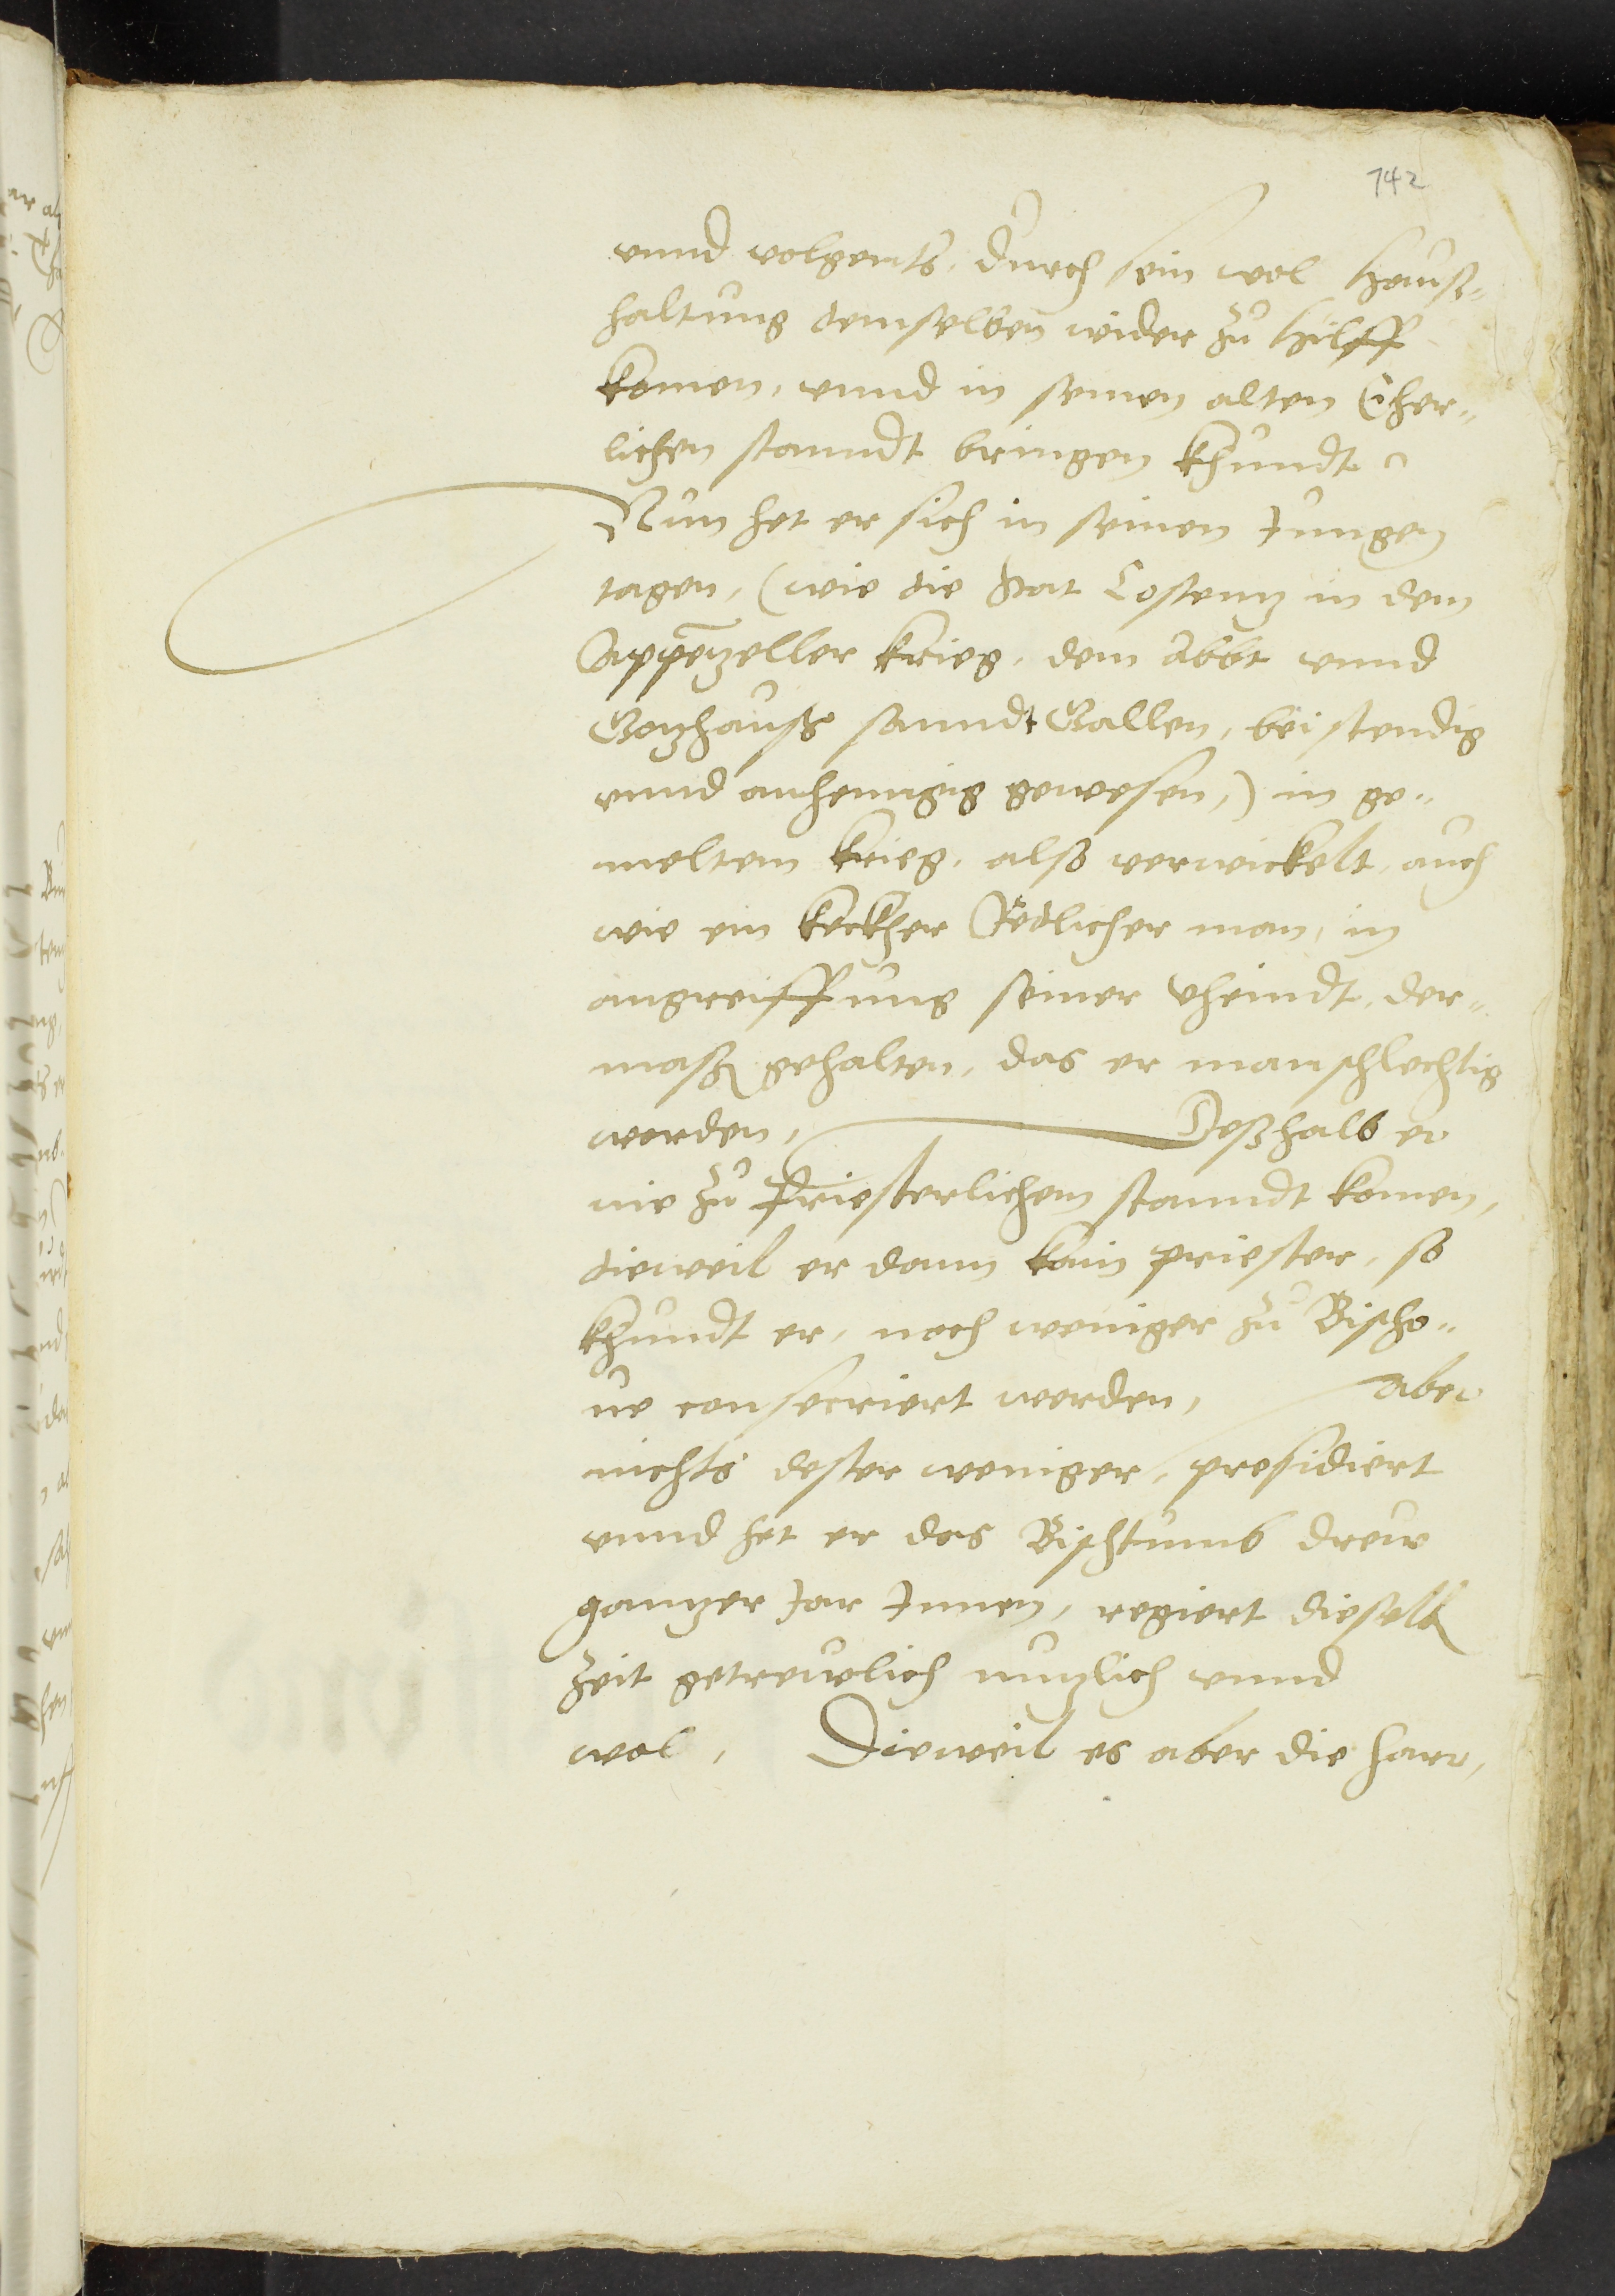 742
vnnd volgents, durch sein wol hauß„
haltung demselben wider zů hilff
komen, vnnd in seinen alten Eher„
lichen stanndt bringen khundt
Nun het er sich in seinen Jungen
tagen, (wie die Stat Costentz in dem
Appenzeller krieg, dem Abbt vnnd
Gotzhauß sanndt Gallen, beistendig
vnnd anhenngig gewesen,) in ge„
meltem krieg, alß verwickelt, auch
wie ein keckher Redlicher man, in
angreiffung seiner vheindt, der„
maß gehalten, das er manschlechtig
worden, Deßhalb er
nie zů Priesterlichem stanndt komen,
dieweil er dann kain priester, so
khundt er, noch weniger zů Bischo„
ue consecriert werden, aber
nichts dester weniger, presidiert
vnnd het er das Bischtumb dreie
gantzer Jar Innen, regiert dieselb
zeit getreuelich nutzlich vnnd
wol, Dieweil es aber die harr,